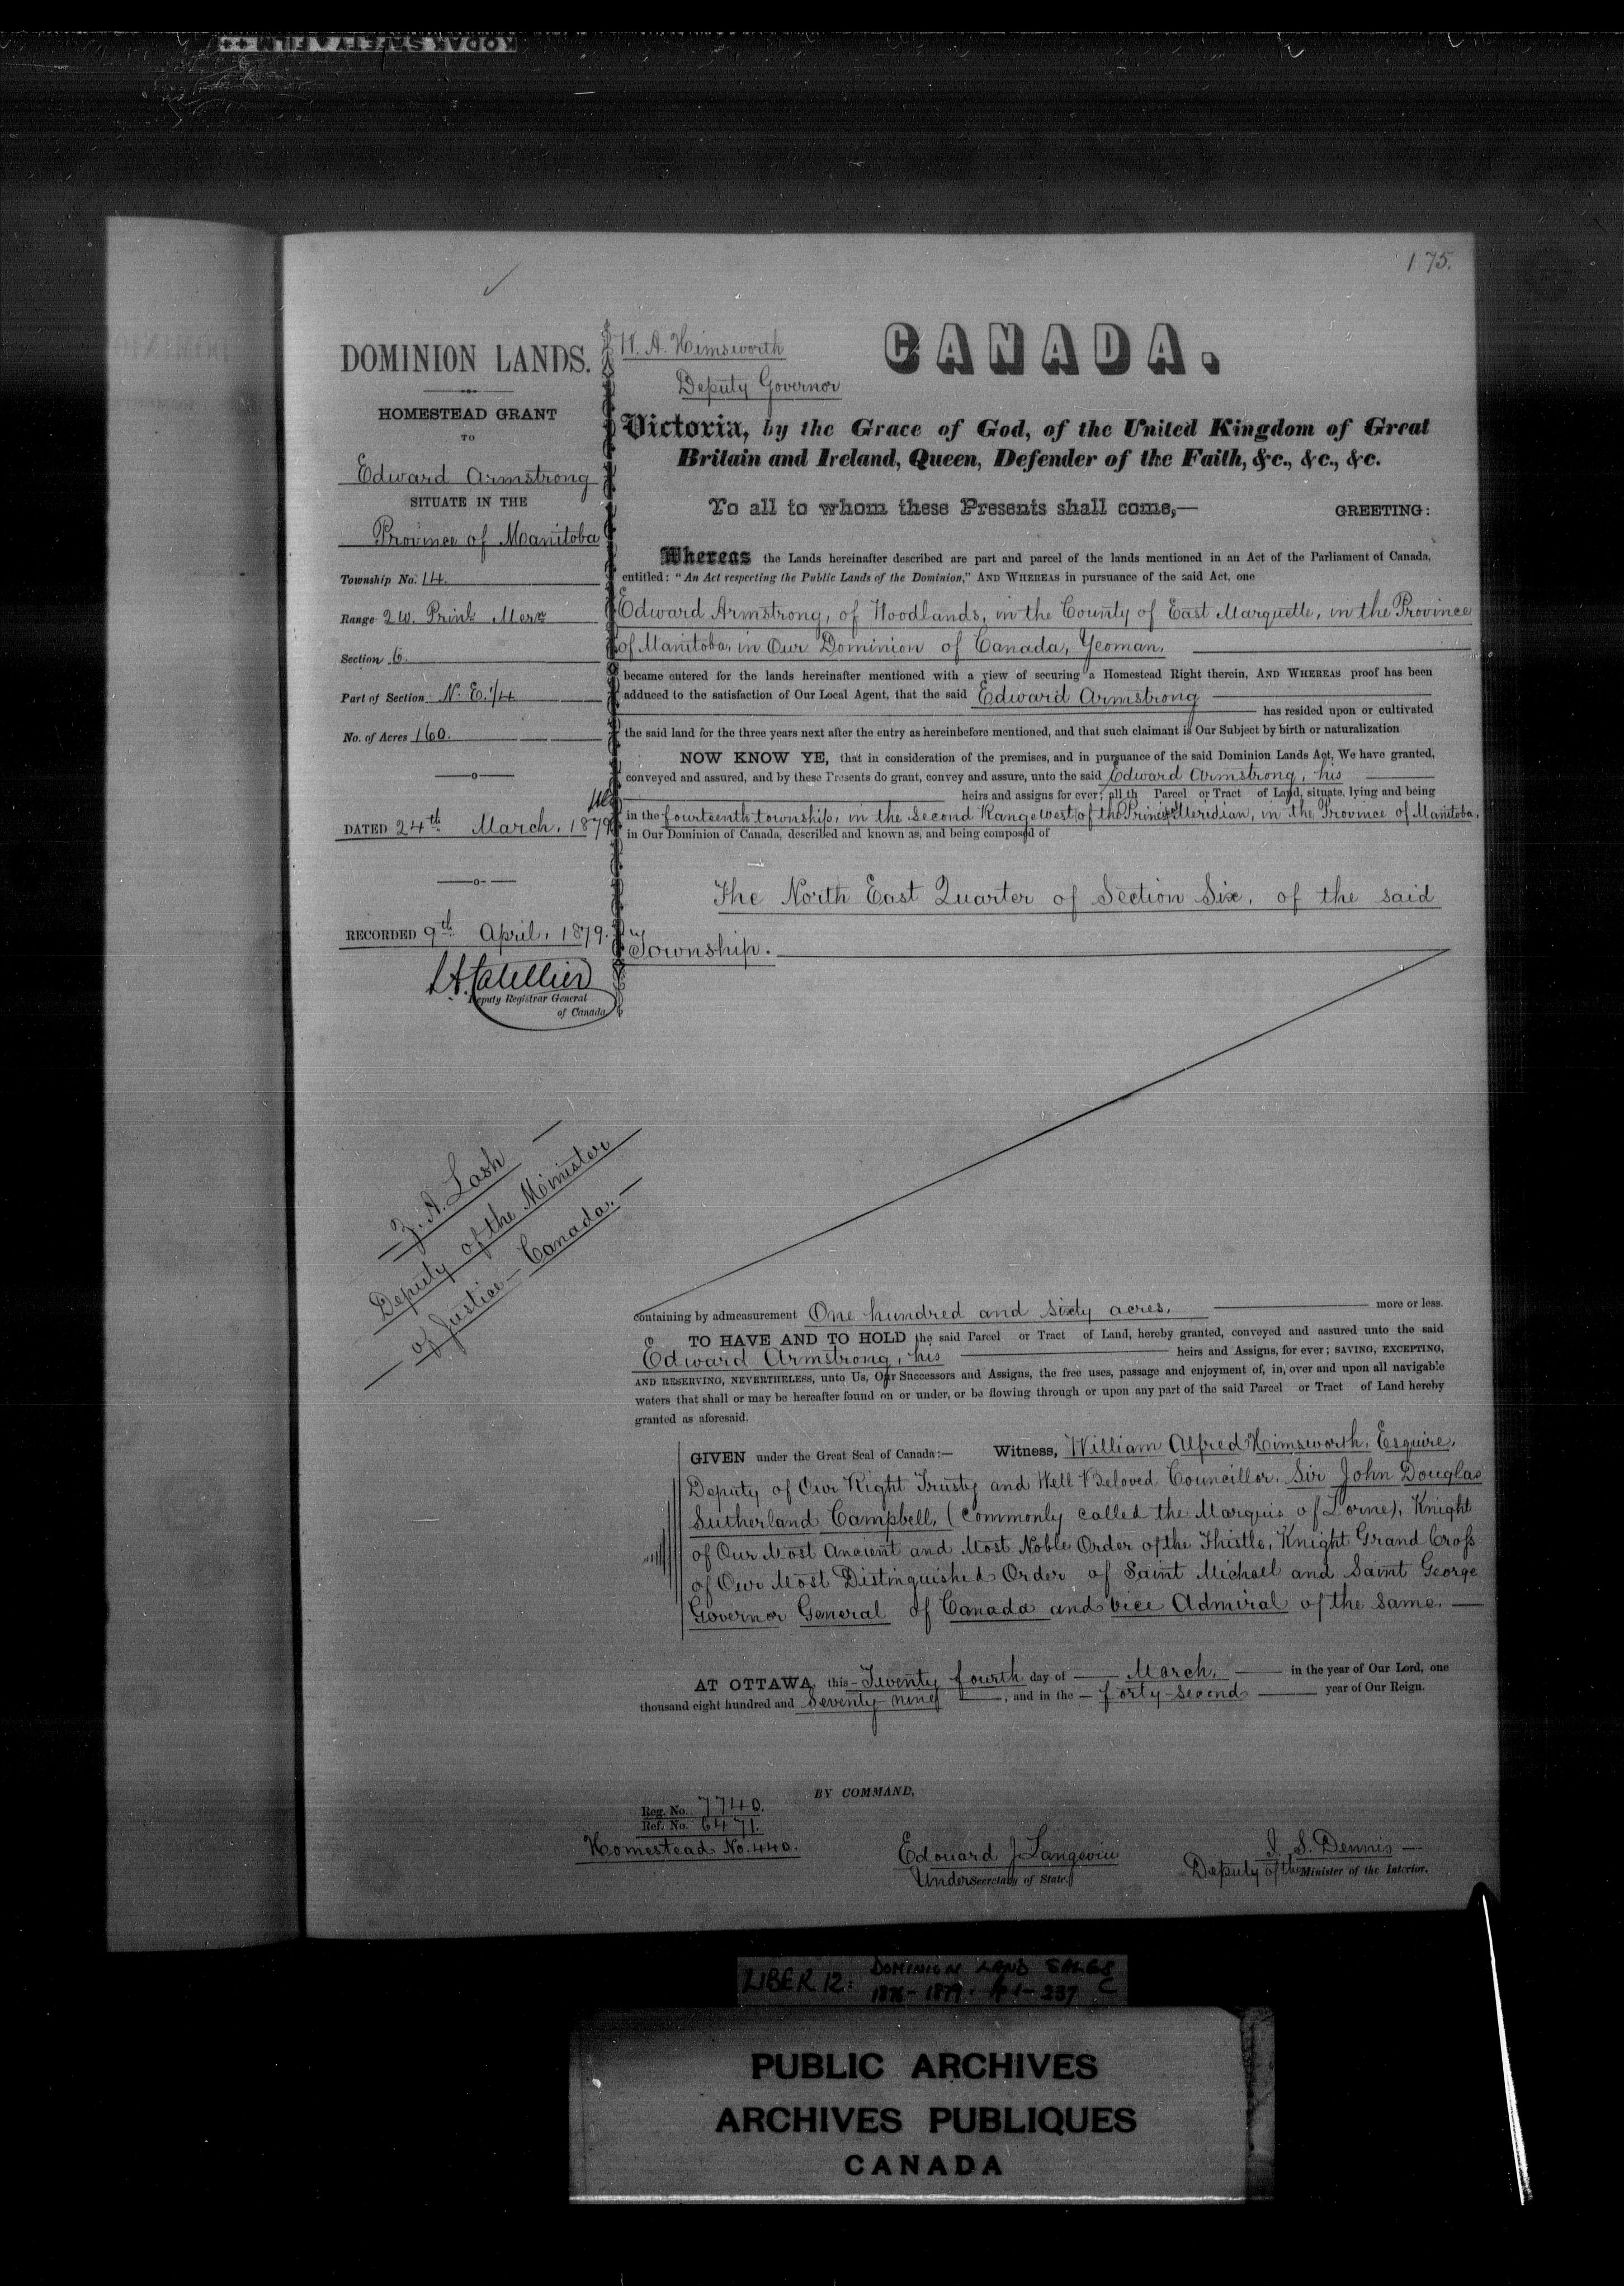 KODAK SAFETY FILM
175.
DOMINION LANDS.
HOMESTEAD GRANT
TO
Edward Armstrong
SITUATE IN THE
Province of Manitoba
Township No. 14.
Range 2 W. Prinl Mern
Section 6.
Part of Section N. E. 1/4
No. of Acres 160.
DATED 24th March, 1879
RECORDED 9th April, 1879.
Deputy Registrar General
of Canada
Z. A. Lash
Deputy of the Minister
of Justice - Canada.
W. A. Himsworth
Deputy Governor
CANADA.
Victoria, by the Grace of God, of the United Kingdom of Great
Britain and Ireland, Queen, Defender of the Faith, &c., &c., &c.
To all to whom these Presents shall come,— GREETING:
Whereas the Lands hereinafter described are part and parcel of the lands mentioned in an Act of the Parliament of Canada,
entitled: "An Act respecting the Public Lands of the Dominion," AND WHEREAS in pursuance of the said Act, one
Edward Armstrong, of Woodlands, in the County of East Marquette, in the Province
of Manitoba, in Our Dominion of Canada, Yeoman.
became entered for the lands hereinafter mentioned with a view of securing a Homestead Right therein, AND WHEREAS proof has been
adduced to the satisfaction of Our Local Agent, that the said Edward Armstrong
has resided upon or cultivated
the said land for the three years next after the entry as hereinbefore mentioned, and that such claimant is Our Subject by birth or naturalization
NOW KNOW YE, that in consideration of the premises, and in pursuance of the said Dominion Lands Act, We have granted,
conveyed and assured, and by these Presents do grant, convey and assure, unto the said Edward Armstrong, his
heirs and assigns for ever; all th Parcel or Tract of Land, situate, lying and being
in the fourteenth township, in the Second Range west of the Princl Meridian, in the Province of Manitoba,
in Our Dominion of Canada, described and known as, and being composed of
The North East Quarter of Section Six, of the said
Township.
containing by admeasurement One hundred and sixty acres, more or less.
TO HAVE AND TO HOLD the said Parcel or Tract of Land, hereby granted, conveyed and assured unto the said
Edward Armstrong, his heirs and Assigns, for ever; SAVING, EXCEPTING,
AND RESERVING, NEVERTHELESS, unto Us, Our Successors and Assigns, the free uses, passage and enjoyment of, in, over and upon all navigable
waters that shall or may be hereafter found on or under, or be flowing through or upon any part of the said Parcel or Tract of Land hereby
granted as aforesaid.
GIVEN under the Great Seal of Canada:— Witness, William Alfred Himsworth, Esquire,
Deputy of Our Right Trusty and Well Beloved Councillor, Sir John Douglas
Sutherland Campbell, (commonly called the Marquis of Lorne), Knight
of Our Most Ancient and Most Noble Order of the Thistle, Knight Grand Cross
of Our Most Distinguished Order of Saint Michael and Saint George
Governor General of Canada and Vice Admiral of the same.
AT OTTAWA, this Twenty fourth day of March, in the year of Our Lord, one
thousand eight hundred and Seventy-nine, and in the forty-second year of Our Reign.
BY COMMAND,
Reg. No. 7740.
Ref. No. 6471.
Homestead No. 440.
Edouard J Langevin
Under Secretary of State.
J. S. Dennis
Deputy of the Minister of the Interior.
LIBER 12: DOMINION LAND SALES
1876-1879. pp 1-237 C
PUBLIC ARCHIVES
ARCHIVES PUBLIQUES
CANADA